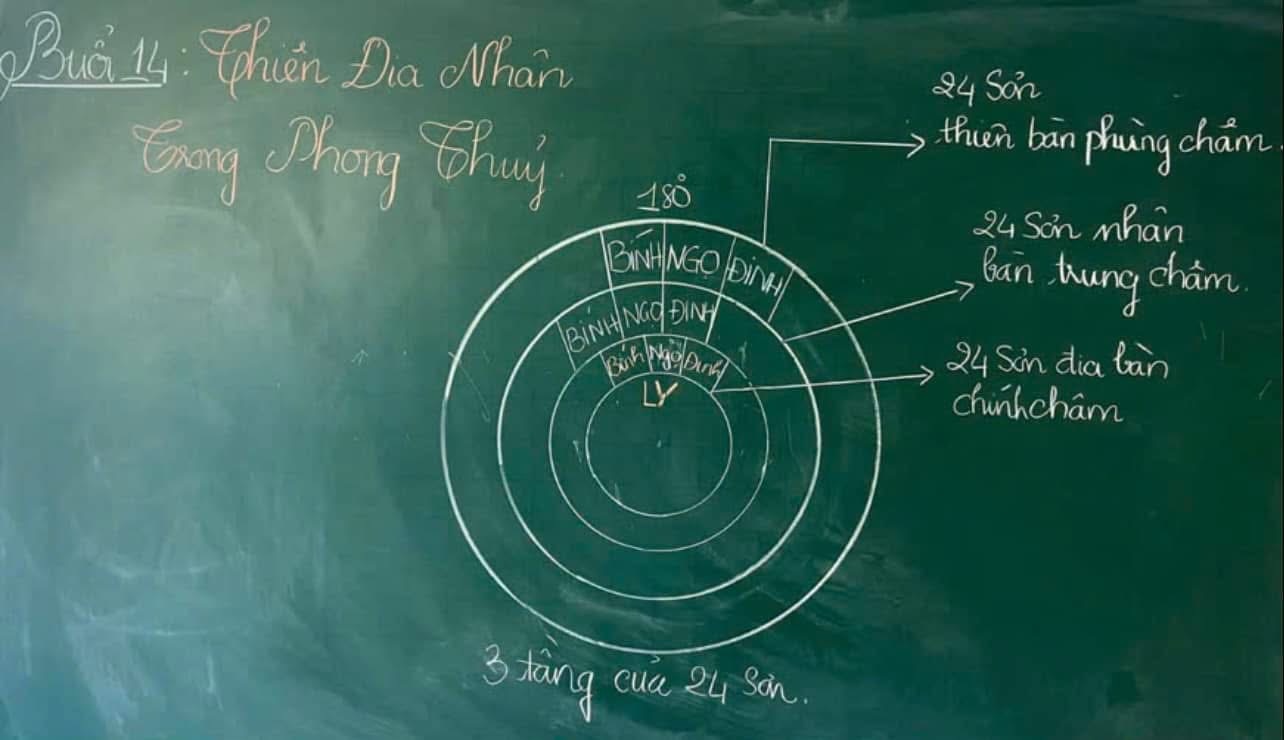 Buổi 14: Thiên Địa Nhân
Trong Phong Thuỷ.
180°
24 Sơn
thiên bàn phùng châm.
24 Sơn nhân
bàn trung châm.
24 Sơn địa bàn
chính châm
BÍNH NGỌ ĐINH
BÍNH NGỌ ĐINH
Bính Ngọ Đinh
LY
3 tầng của 24 Sơn.